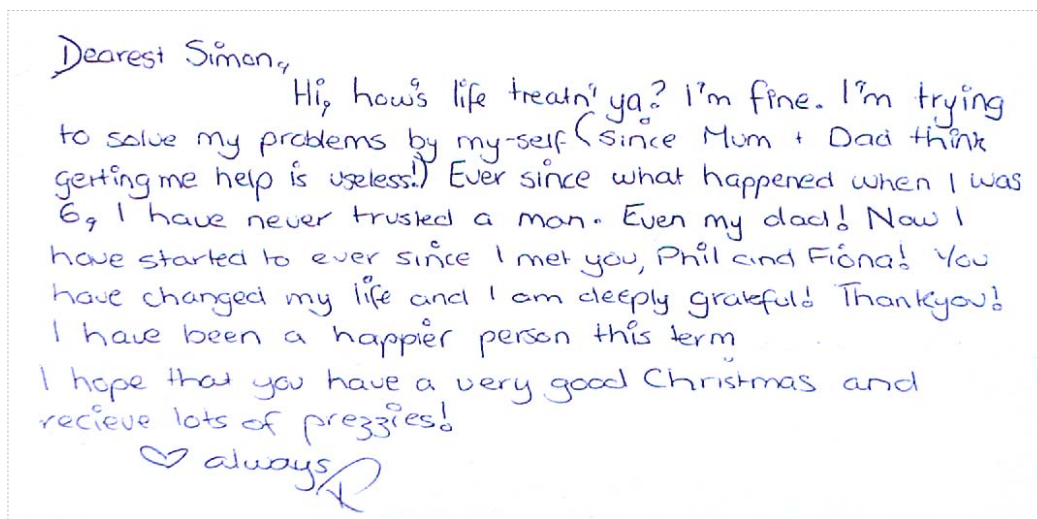 Dearest Simon,
Hi, how's life treatn' ya? I'm fine. I'm trying
to solve my problems by my-self (since Mum + Dad think
getting me help is useless!) Ever since what happened when I was
6, I have never trusted a man. Even my dad! Now I
have started to ever since I met you, Phil and Fiona! You
have changed my life and I am deeply grateful! Thankyou!
I have been a happier person this term
I hope that you have a very good Christmas and
recieve lots of prezzies!
♡ always
R